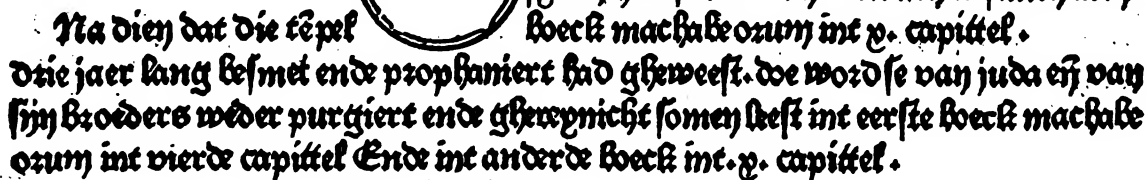 Na dien dat die tēpel boeck machabeorum int x. capittel.
drie jaer lang besmet ende prophaniert had gheweest. doe word se van juda eñ van
sijn broeders weder purgiert ende ghereynicht so men leest int eerste boeck machabe
orum int vierde capittel Ende int ander de boeck int. x. capittel.